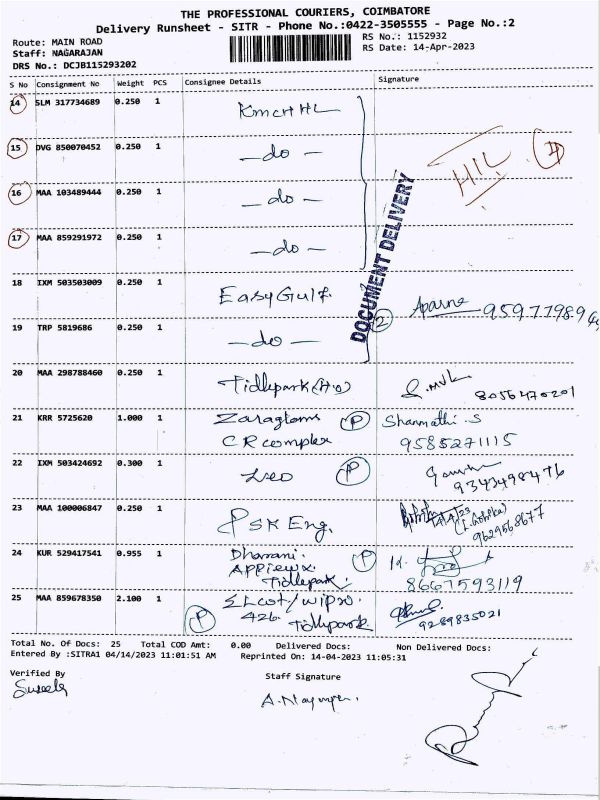 THE PROFESSIONAL COURIERS, COIMBATORE
Delivery Runsheet - SITR - Phone No.:0422-3505555 - Page No.:2
Route: MAIN ROAD
Staff: NAGARAJAN
DRS No.: DCJB115293202
RS No.: 1152932
RS Date: 14-Apr-2023
S No Consignment No Weight PCS Consignee Details Signature
14 SLM 317734689 0.250 1 KMCH HL
15 DVG 850070452 0.250 1 —do—
HIL
16 MAA 103489444 0.250 1 —do—
17 MAA 859291972 0.250 1 —do—
DOCUMENT DELIVERY
18 IXM 503503009 0.250 1 EasyGulf.
2 Aparna
19 TRP 5819686 0.250 1 —do—
20 MAA 298788460 0.250 1 Tidlepark (H.O)
8056470201
21 KRR 5725620 1.000 1 Zaragtoms P Shanmathi.S
CR complex 9585271115
22 IXM 503424692 0.300 1 Leo P
9343498476
23 MAA 100006847 0.250 1 PSK Eng.
9629568677
24 KUR 529417541 0.955 1 Dharani. P
Appiewx.
Tidlepark. 8667593119
25 MAA 859678350 2.100 1 Elcot/wipro.
P 426 Tidlepark 9289835021
Total No. Of Docs: 25 Total COD Amt: 0.00 Delivered Docs: Non Delivered Docs:
Entered By :SITRA1 04/14/2023 11:01:51 AM Reprinted On: 14-04-2023 11:05:31
Verified By Staff Signature